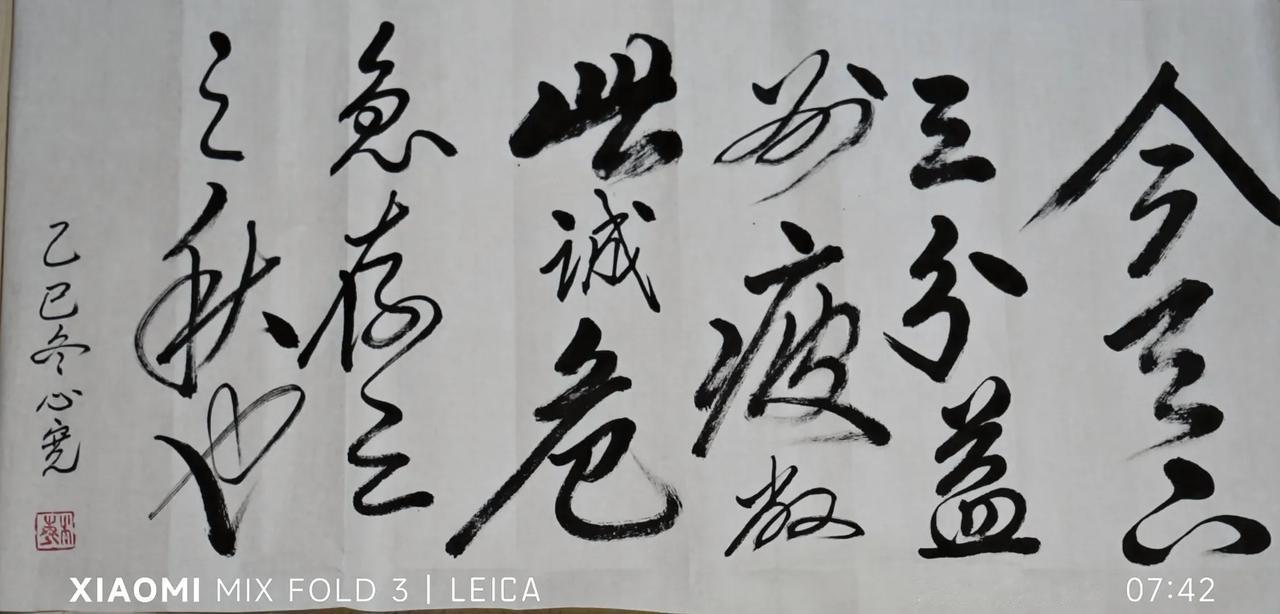 今天下
三分益
州疲敝
此诚危
急存亡
之秋也
乙巳冬心宽
XIAOMI MIX FOLD 3 | LEICA
07:42